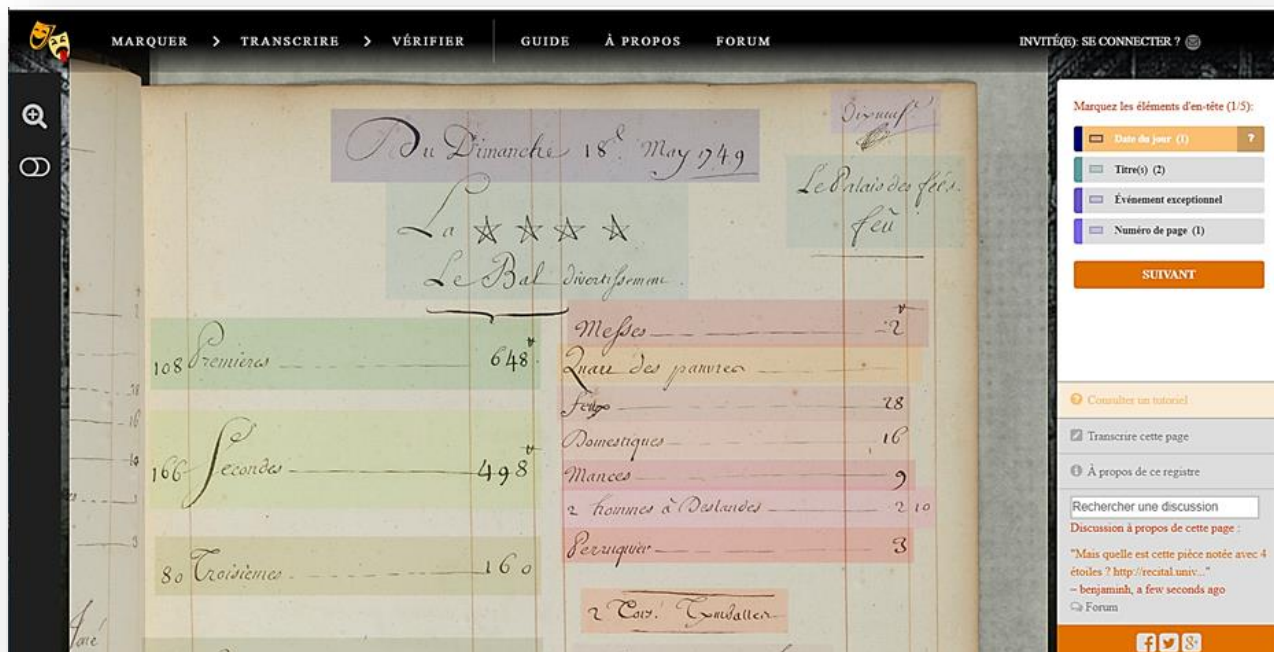 MARQUER > TRANSCRIRE > VÉRIFIER GUIDE À PROPOS FORUM INVITÉ(E): SE CONNECTER ?
Dixneuf.
Du Dimanche 18e. May 1749
Le Palais des feés.
feü
La ☆ ☆ ☆ ☆
Le Bal divertissement.
108 Premieres 648
166 Secondes 498
80 Troisièmes 160
Messes 2
Quart des pauvres
feux 28
Domestiques 16
Mances 9
2 hommes à Deslandes 2 10
Perruquier 3
2 Timballier
Marquez les éléments d'en-tête (1/5):
Date du jour (1) ?
Titre(s) (2)
Événement exceptionnel
Numéro de page (1)
SUIVANT
Consulter un tutoriel
Transcrire cette page
À propos de ce registre
Rechercher une discussion
Discussion à propos de cette page :
"Mais quelle est cette pièce notée avec 4
étoiles ? http://recital.univ..."
– benjaminh, a few seconds ago
Forum